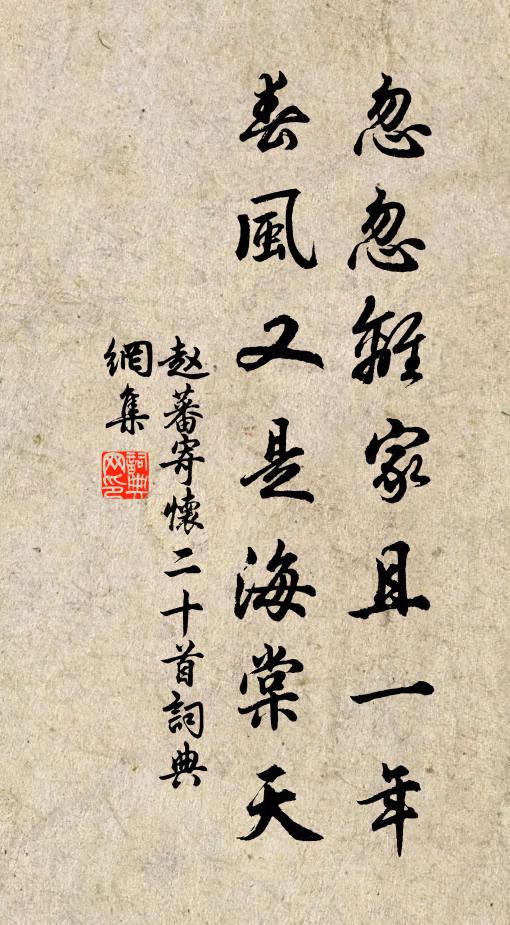 忽忽離家且一年
春風又是海棠天
赵蕃寄懷二十首詞典
網集
詞典網印